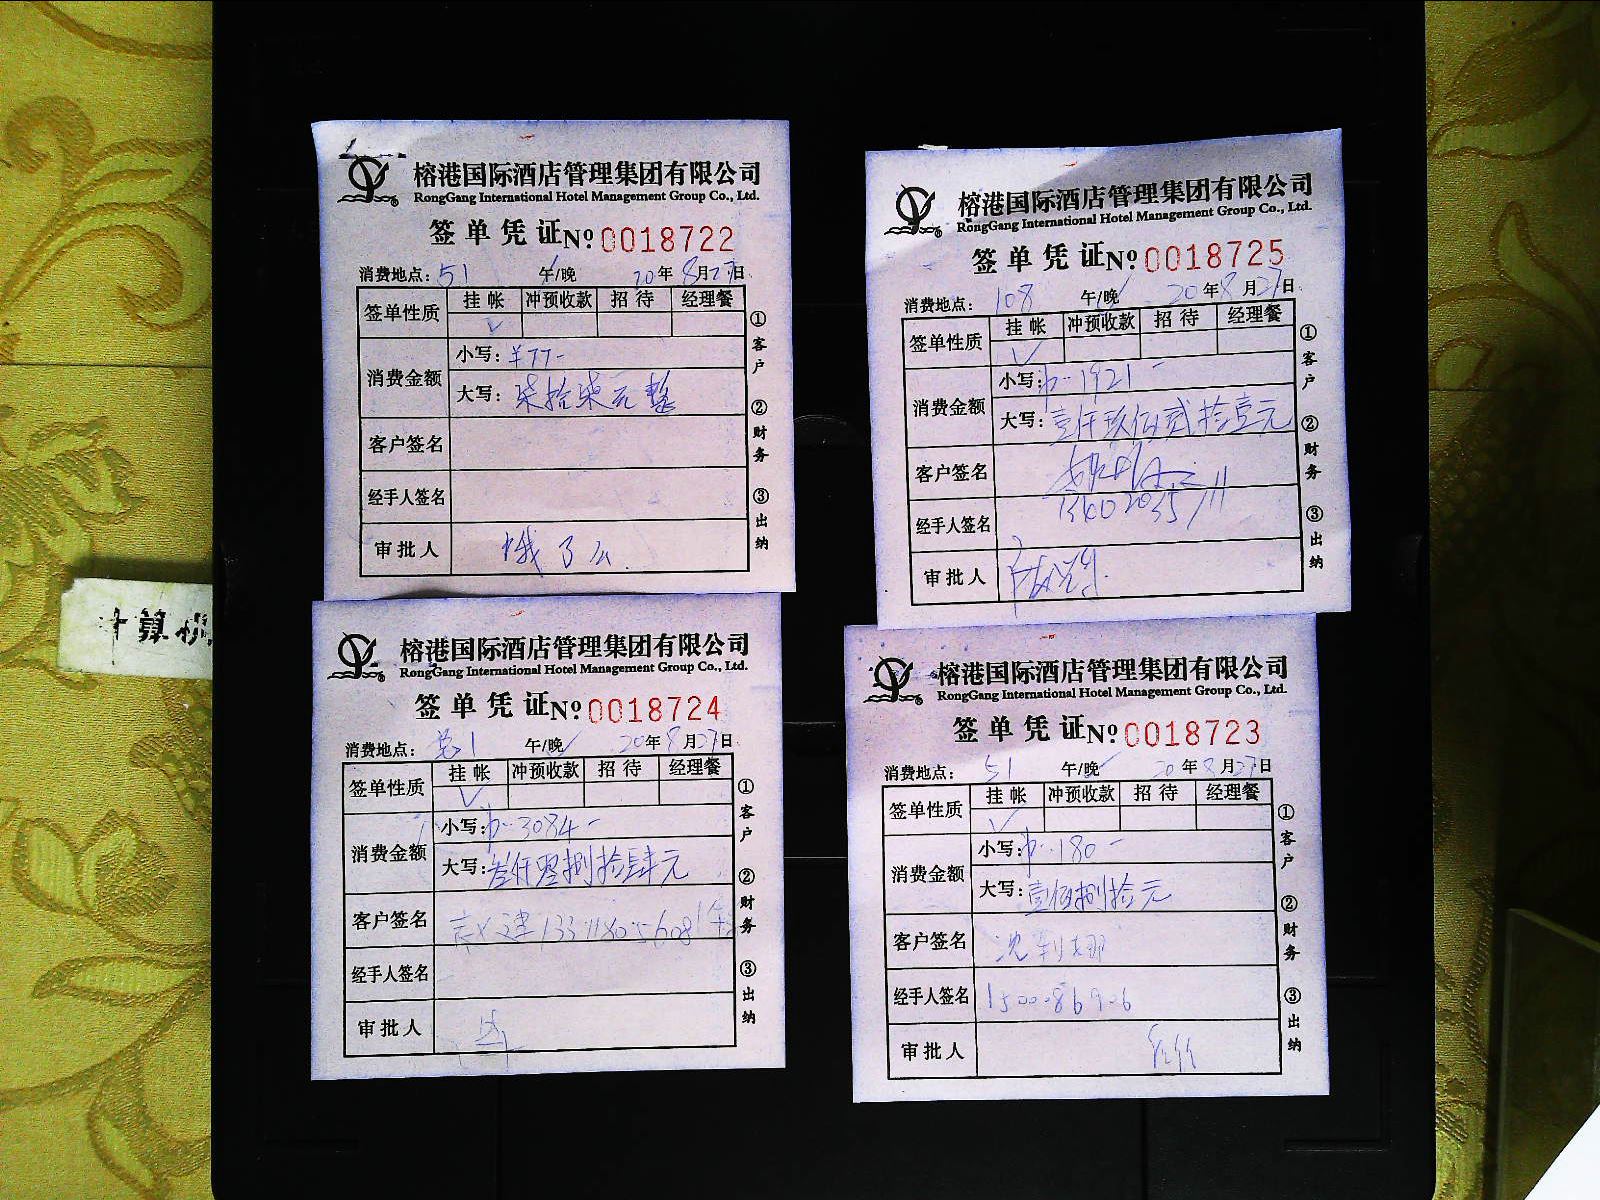 榕港国际酒店管理集团有限公司
RongGang International Hotel Management Group Co., Ltd.
签单凭证 № 0018722
消费地点: 51 午/晚 20年8月27日
签单性质 挂帐 冲预收款 招待 经理餐
消费金额 小写: ¥77-
大写: 柒拾柒元整
客户签名
经手人签名
审批人 饿了么
①客户 ②财务 ③出纳
榕港国际酒店管理集团有限公司
RongGang International Hotel Management Group Co., Ltd.
签单凭证 № 0018725
消费地点: 108 午/晚 20年8月27日
签单性质 挂帐 冲预收款 招待 经理餐
消费金额 小写: 1921-
大写: 壹仟玖佰贰拾壹元
客户签名
经手人签名
审批人
①客户 ②财务 ③出纳
计算机
榕港国际酒店管理集团有限公司
RongGang International Hotel Management Group Co., Ltd.
签单凭证 № 0018724
消费地点: 总1 午/晚 20年8月27日
签单性质 挂帐 冲预收款 招待 经理餐
消费金额 小写: 3084-
大写: 叁仟零捌拾肆元
客户签名
经手人签名
审批人
①客户 ②财务 ③出纳
榕港国际酒店管理集团有限公司
RongGang International Hotel Management Group Co., Ltd.
签单凭证 № 0018723
消费地点: 51 午/晚 20年8月27日
签单性质 挂帐 冲预收款 招待 经理餐
消费金额 小写: 180-
大写: 壹佰捌拾元
客户签名
经手人签名
审批人
①客户 ②财务 ③出纳